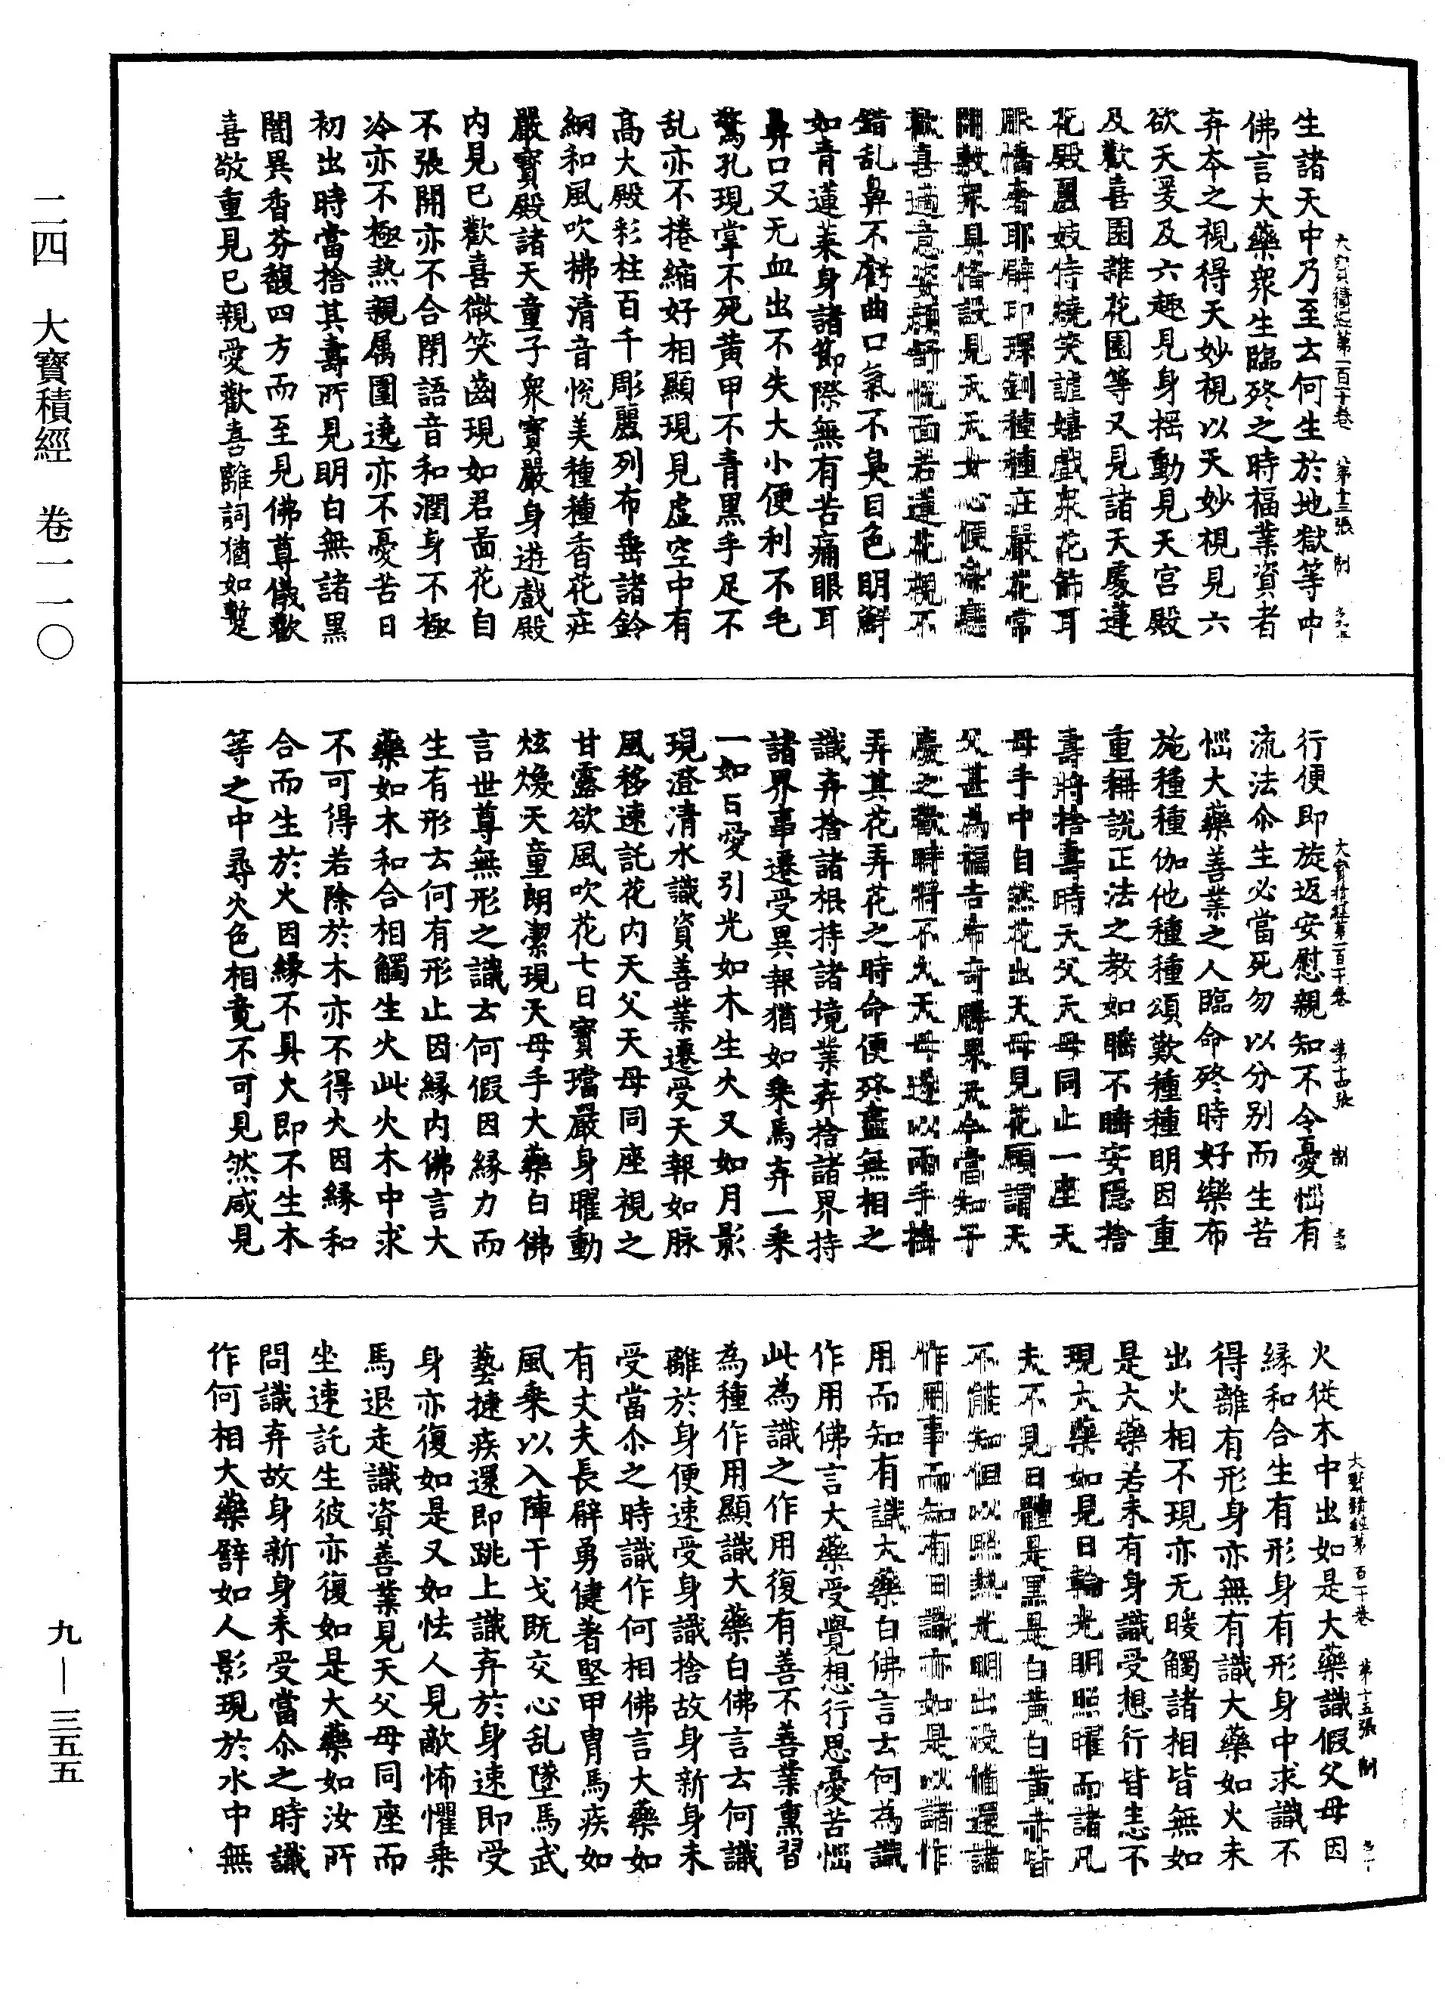 生諸天中乃至云何生於地獄等中
佛言大藥衆生臨終之時福業資者
弃夲之視得天妙視以天妙視見六
欲天爰及六趣見身揺動見天宫殿
及歡喜園雜花園等又見諸天處蓮
花殿麗妓侍繞笑謔嬉戲衆花飾耳
服憍奢耶臂印環釧種種莊嚴花常
開敷衆具俻設見天天女心便
歡喜適意姿顔舒恱面若蓮花視不
錯乱鼻不虧曲口氣不臭目色明鮮
如青蓮葉身諸節際無有苦痛眼耳
鼻口又无血出不失大小便利不毛
驚孔現掌不死黄甲不青黑手足不
乱亦不捲縮好相顯現見虛空中有
高大殿彩柱百千彫麗列布垂諸鈴
網和風吹拂清音恱美種種香花莊
嚴寶殿諸天童子衆寶嚴身遊戲殿
内見已歡喜微笑齒現如君啚花自
不張開亦不合閇語音和潤身不極
冷亦不極熱親属圍遶亦不憂苦日
初出時當捨其壽所見明白無諸黑
闇異香芬馥四方而至見佛尊儀歡
喜敬重見已親愛歡喜離詞猶如暫
行便即旋返安慰親知不令憂惱有
流法尒生必當死勿以分别而生苦
惱大藥善業之人臨命終時好樂布
施種種伽他種種頌歎種種明因重
重稱説正法之教如睡不睡安隱捨
壽將捨壽時天父天母同止一座天
母手中自然花出天母見花顧謂天
父甚為福吉希奇勝果天今當知子
慶之歡時將不久天母遂以兩手揺
弄其花弄花之時命便終盡無相之
識弃捨諸根持諸境業弃捨諸界持
諸界事遷受異報猶如乘馬弃一乘
一如日愛引光如木生火又如月影
現澄清水識資善業遷受天報如脉
風移速託花内天父天母同座視之
甘露欲風吹花七日寶璫嚴身曜動
炫煥天童朗潔現天母手大藥白佛
言世尊無形之識云何假因縁力而
生有形云何有形止因縁内佛言大
藥如木和合相觸生火此火木中求
不可得若除於木亦不得火因縁和
合而生於火因縁不具火即不生木
等之中尋火色相竟不可見然咸見
火從木中出如是大藥識假父母因
縁和合生有形身有形身中求識不
得離有形身亦無有識大藥如火未
出火相不現亦无暖觸諸相皆無如
是大藥若未有身識受想行皆悉不
現大藥如見日輪光明照曜而諸凡
夫不見日體是黑是白黄白黄赤皆
不能知但以照熱光明出没俻還諸
作用事而知有日識亦如是以諸作
用而知有識大藥白佛言云何為識
作用佛言大藥受覺想行思憂苦惱
此為識之作用復有善不善業熏習
為種作用顯識大藥白佛言云何識
離於身便速受身識捨故身新身未
受當尒之時識作何相佛言大藥如
有丈夫長臂勇健著堅甲冑馬疾如
風乘以入陣干戈既交心乱墜馬武
藝捷疾還即跳上識弃於身速即受
身亦復如是又如怯人見敵怖懼乘
馬退走識資善業見天父母同座而
坐速託生彼亦復如是大藥如汝所
問識弃故身新身未受當尒之時識
作何相大藥譬如人影現於水中無
二四 大寶積經 卷一一〇
九—三五五